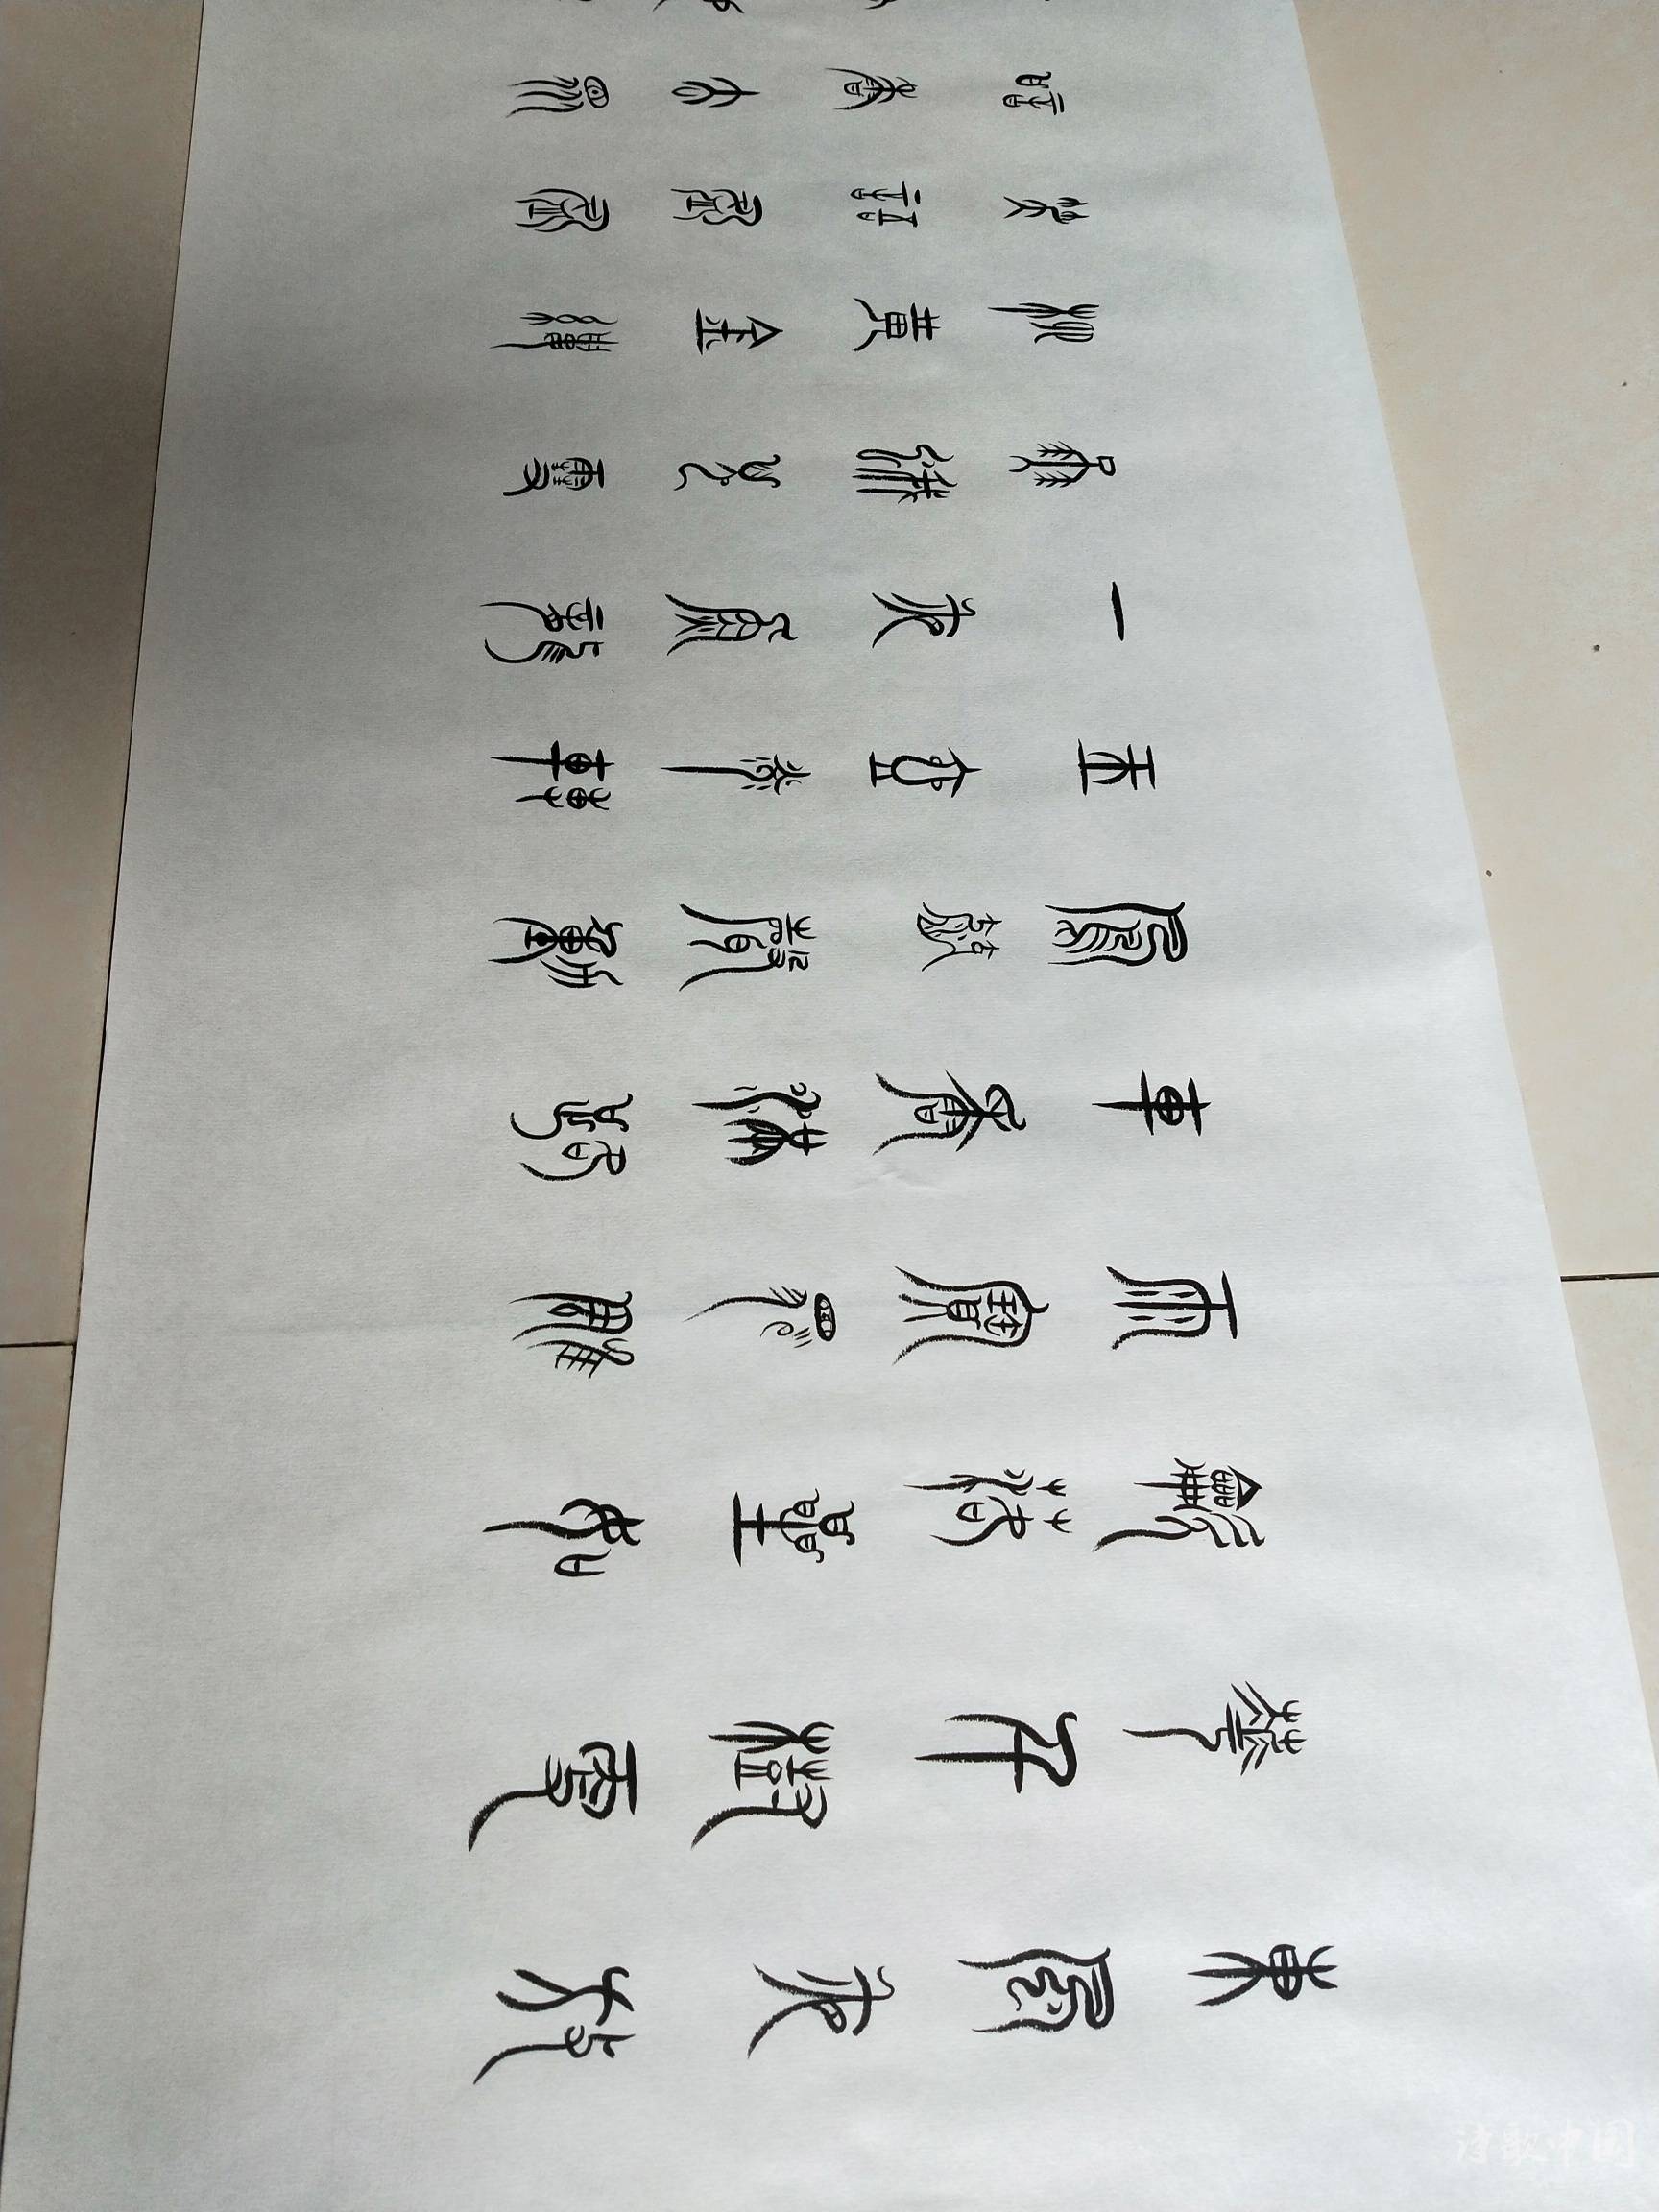 東風夜放
華千樹更
吹落星如
雨寶馬雕
車香滿路
鳳簫聲動
玉壺光轉
一夜魚龍
舞蛾兒雪
柳黃金縷
笑語盈盈
暗香去眾
诗歌中国